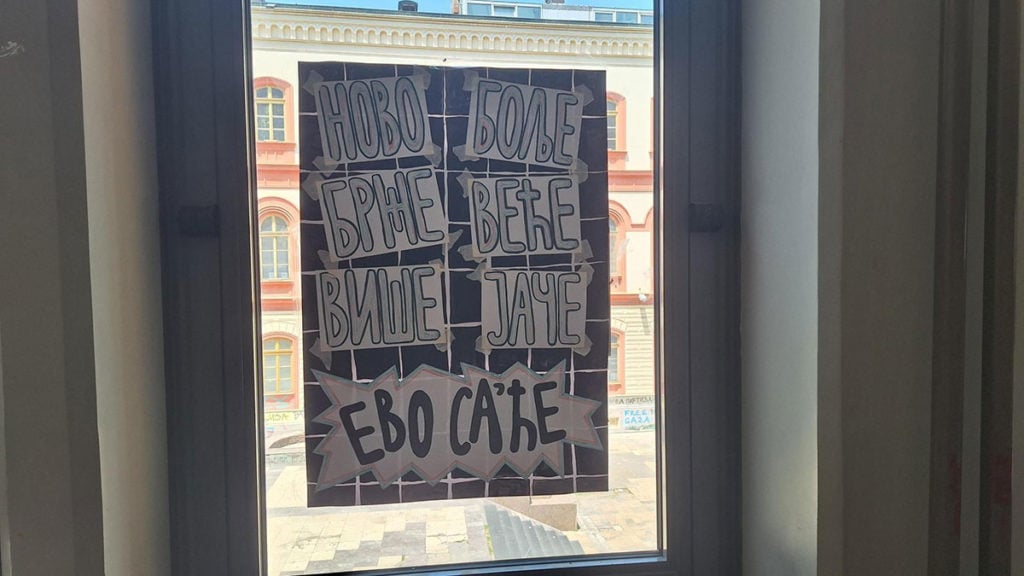 НОВО БОЉЕ
БРЖЕ ВЕЋЕ
ВИШЕ ЈАЧЕ
ЕВО СА'ЋЕ
FREE
GAZA